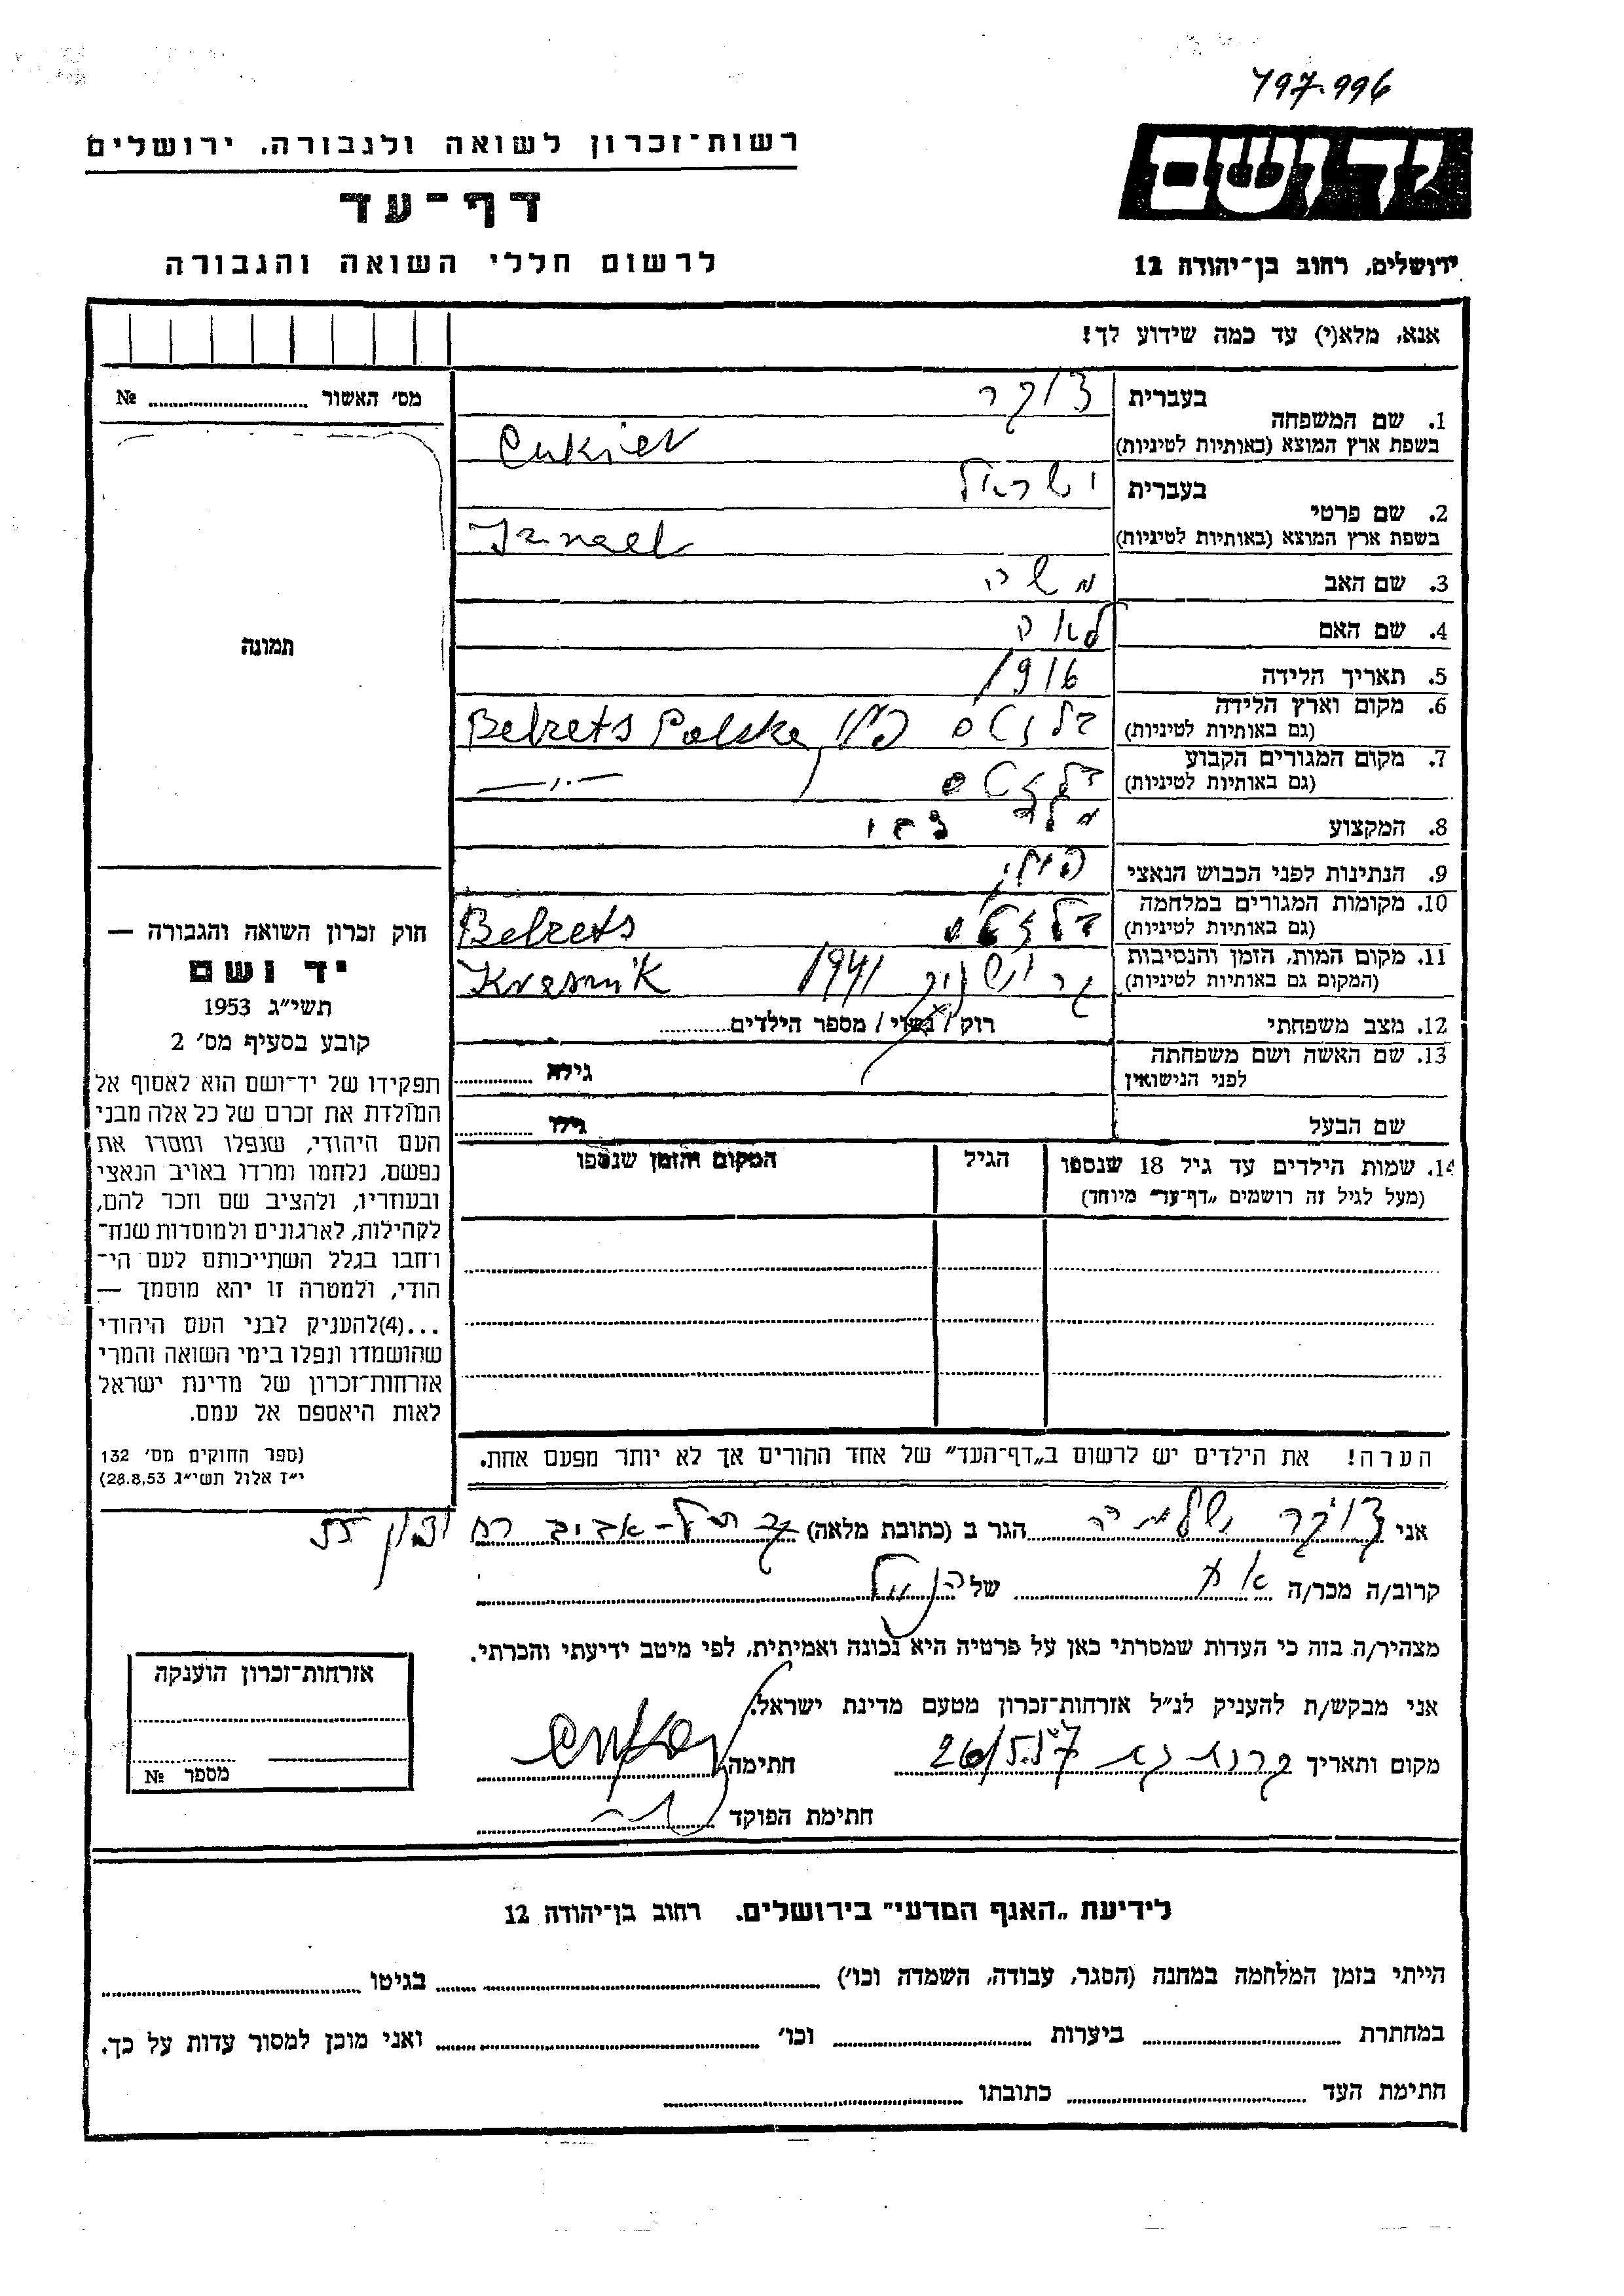 797.996
יד ושם
רשות־זכרון לשואה ולגבורה, ירושלים
דף־עד
לרשום חללי השואה והגבורה
ירושלים, רחוב בן־יהודה 12
אנא, מלא(י) עד כמה שידוע לך!
מס' האשור № 
1. שם המשפחה בעברית צוקר
בשפת ארץ המוצא (באותיות לטיניות) Cukier
2. שם פרטי בעברית ישראל
בשפת ארץ המוצא (באותיות לטיניות) Izrael
3. שם האב משה
4. שם האם לאה
5. תאריך הלידה 1916
6. מקום וארץ הלידה
(גם באותיות לטיניות) בלזטס פולין Belzets Polska
7. מקום המגורים הקבוע
(גם באותיות לטיניות) בלזטס —״—
8. המקצוע
9. הנתינות לפני הכבוש הנאצי פולני
10. מקומות המגורים במלחמה
(גם באותיות לטיניות) בלזטס Belzets
11. מקום המות, הזמן והנסיבות
(המקום גם באותיות לטיניות) 1941 Krasnik
12. מצב משפחתי רווק / נשוי / מספר הילדים
13. שם האשה ושם משפחתה
לפני הנישואין גילה
שם הבעל גילו
14. שמות הילדים עד גיל 18 שנספו הגיל המקום והזמן שנספו
(מעל לגיל זה רושמים „דף־עד״ מיוחד)
הערה! את הילדים יש לרשום ב„דף־העד״ של אחד ההורים אך לא יותר מפעם אחת.
תמונה
חוק זכרון השואה והגבורה —
יד ושם
תשי״ג 1953
קובע בסעיף מס' 2
תפקידו של יד־ושם הוא לאסוף אל
המולדת את זכרם של כל אלה מבני
העם היהודי, שנפלו ומסרו את
נפשם, נלחמו ומרדו באויב הנאצי
ובעוזריו, ולהציב שם וזכר להם,
לקהילות, לארגונים ולמוסדות שנח־
רבו בגלל השתייכותם לעם הי־
הודי, ולמטרה זו יהא מוסמך —
...(4)להעניק לבני העם היהודי
שהושמדו ונפלו בימי השואה והמרי
אזרחות־זכרון של מדינת ישראל
לאות היאספם אל עמם.
(ספר החוקים מס' 132
י״ז אלול תשי״ג 28.8.53)
אני צוקר שלמה הגר ב (כתובת מלאה) תל־אביב רח 55
קרוב/ה מכר/ה אח של הנ״ל
מצהיר/ה בזה כי העדות שמסרתי כאן על פרטיה היא נכונה ואמיתית, לפי מיטב ידיעתי והכרתי.
אני מבקש/ת להעניק לנ״ל אזרחות־זכרון מטעם מדינת ישראל.
מקום ותאריך 26/5.57 חתימה
חתימת הפוקד
אזרחות־זכרון הוענקה
מספר №
לידיעת „האגף המדעי״ בירושלים. רחוב בן־יהודה 12
הייתי בזמן המלחמה במחנה (הסגר, עבודה, השמדה וכו') בגיטו
במחתרת ביערות וכו' ואני מוכן למסור עדות על כך.
חתימת העד כתובתו